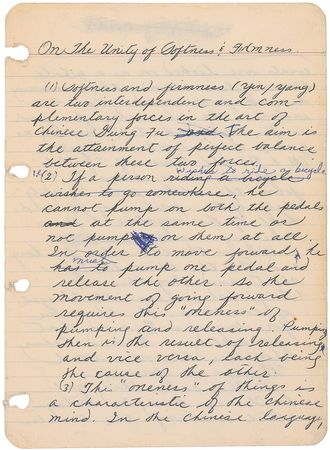 On The Unity of Softness & Firmness.
(1) Softness and firmness (yin/yang)
are two interdependent and com-
plementary forces in the art of
Chinese Kung Fu and. The aim is
the attainment of perfect balance
between these two forces.
wishes to ride a bicycle
(2) If a person riding a bicycle
wishes to go somewhere, he
cannot pump on both the pedals
and at the same time or
not pump on them at all.
In order to move forward, he
must
has to pump one pedal and
release the other. So the
movement of going forward
requires this "oneness" of
pumping and releasing. Pumping
then is the result of releasing
and vice versa, each being
the cause of the other.
(3) The "oneness" of things is
a characteristic of the Chinese
mind. In the Chinese language,